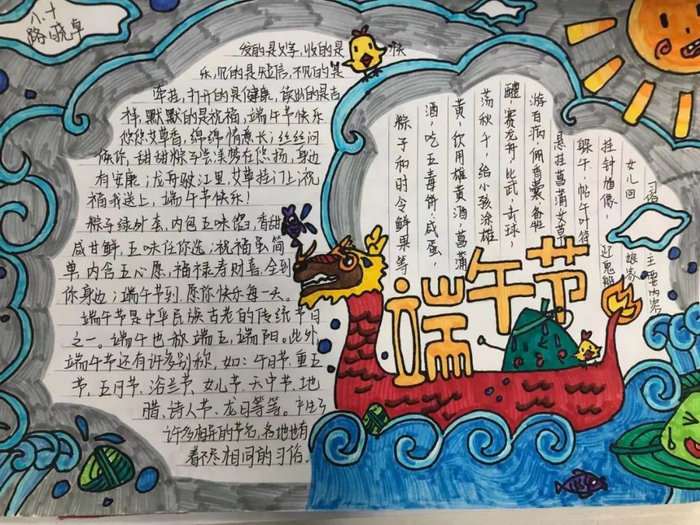 八.十
路晓卓
发的是文字，收的是快
乐，沉的是短信，不沉的是
牵挂，打开的是健康，读出的是吉
祥，默默的是祝福，端午节快乐
悠悠艾草香，绵绵情意长；丝丝问
候你，甜甜粽子尝美梦在悠扬，身边
有安康；龙舟驶江里，艾草挂门上；祝
福我送上，端午节快乐！
粽子绿外衣，内包五味馅，香甜
咸甘鲜，五味任你选；祝福虽简
单，内含五心愿，福禄寿财喜，全到
你身边；端午节到，愿你快乐每一天。
端午节是中华民族古老的传统节日
之一。端午也称端五，端阳。此外，
端午节还有许多别称，如：午日节、重五
节、五月节、浴兰节、女儿节、天中节、地
腊、诗人节、龙日等等。产生了
许多相异的节名，各地也有
着不尽相同的习俗。
习俗主要内容
女儿回娘家
挂钟馗像，迎鬼船
躲午，帖午叶符
悬挂菖蒲、艾草
游百病，佩香囊，备牲
醴，赛龙舟，比武，击球
荡秋千，给小孩涂雄
黄，饮用雄黄酒，菖蒲
酒，吃五毒饼、咸蛋，
粽子和时令鲜果等
端午节